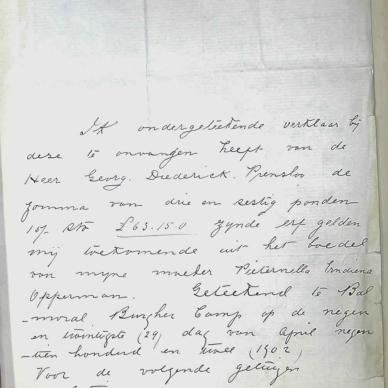 Ik ondergeteekende verklaar bij
deze te onvangen heeft van de
Heer Georg. Diederick. Prensloo de
somma van drie en sestig ponden
15/- stg £63.15.0 zynde erf gelden
mij toekomende uit het boedel
van myne moeder Pieternella
Opperman. Geteekend te Bal
-moral Burgher Camp op de negen
en twintigste (29) dag van April negen
-tien honderd en twee (1902)
Voor de volgende getuigen